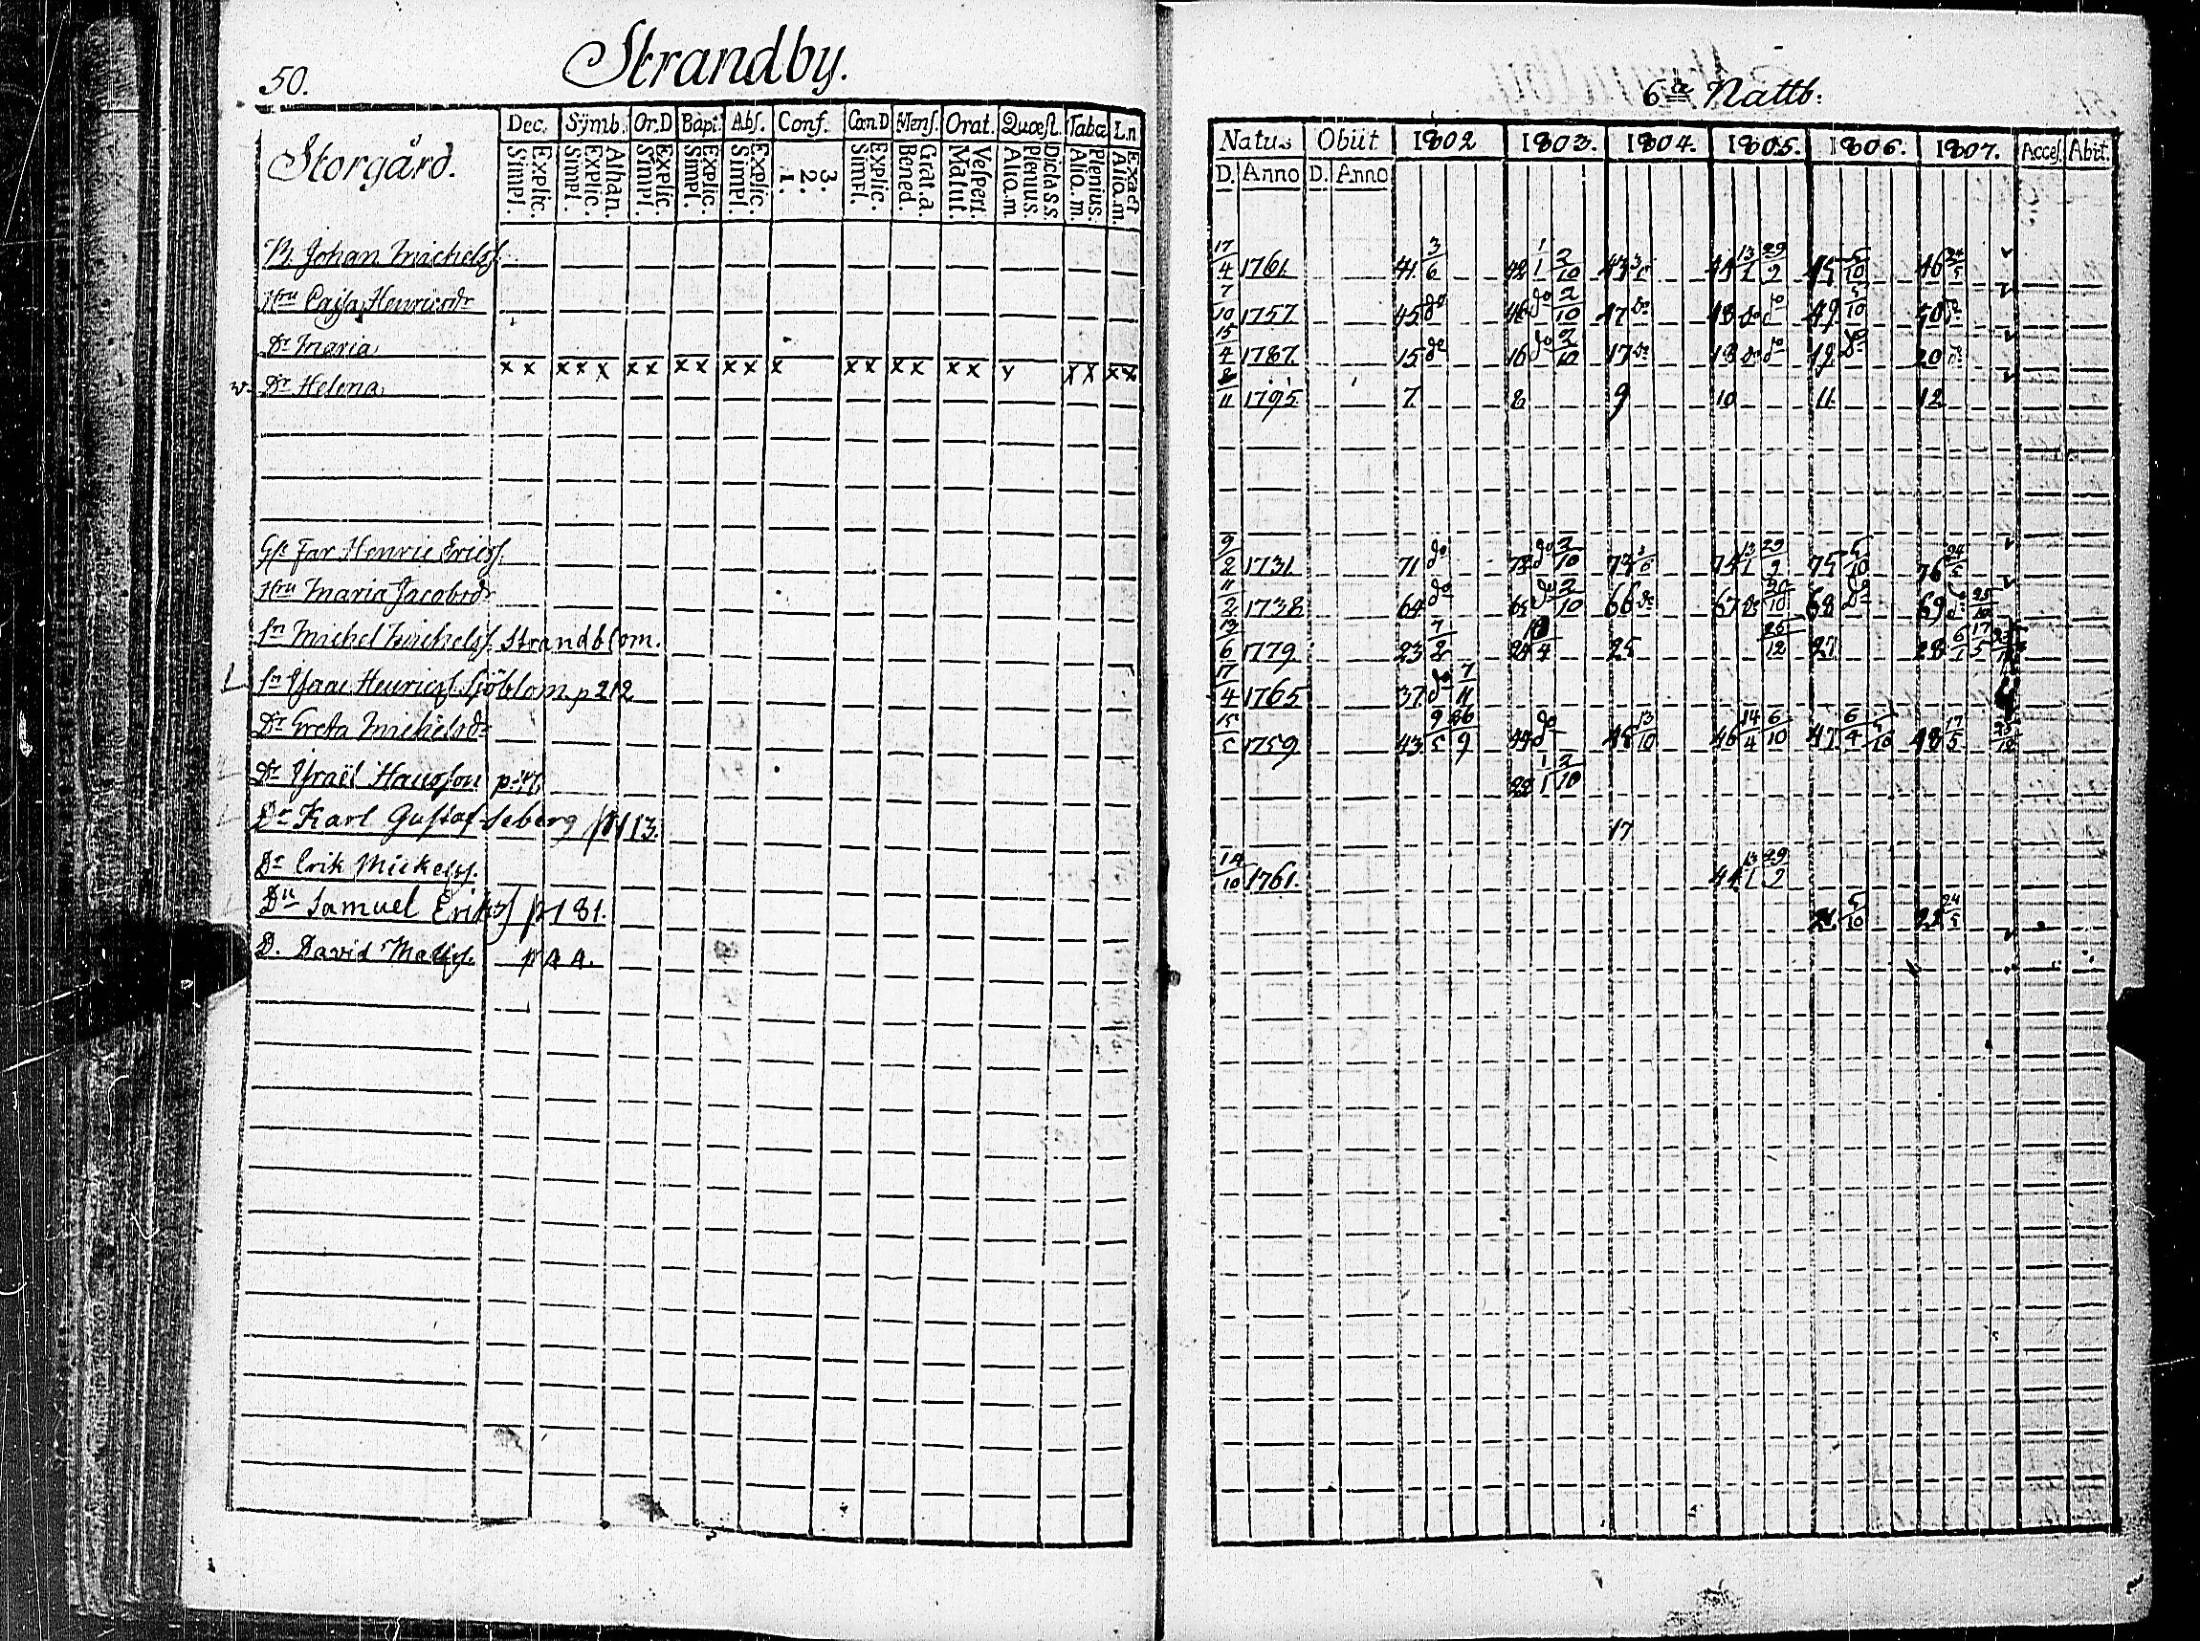 50.
Strandby.
Storgård.
Dec. Symb. Or.D Bapt. Abs. Conf. Cœn.D Mens. Orat. Quæst. Tabæ L.n
Simpl. Explic. Simpl. Explic. Athan. Simpl. Explic. Simpl. Explic. Simpl. Explic. 1. 2. 3. Simpl. Explic. Bened. Grat.a. Matut. Vespert. Alio.m. Plenius. Dicta S.S. Alio.m. Plenius. Alio.m. Exact
B. Johan Michelss.
Hru Cajsa Henricsdr
Dr Maria
x x x x x x x x x x x x x x x x x x x x x x x
Dr Helena
Gl. Far Henric Ericss.
Hru Maria Jacobsdr
Sn Michel Michelss. Strandblom.
Sn Isaac Henricss. Sjöblom p 212
Dr Greta Michelsdr
Dr Israël Hansson
Dr Karl Gustaf Seberg p 113.
Dr Erik Mickelss.
Dn Samuel Erikss p 181.
D. David Matss. p
6te Nattb:
Natus Obiit 1802 1803. 1804. 1805. 1806. 1807. Acces. Abit.
D. Anno D. Anno
17/4 1761 41 3/6 42 1/1 2/10 43 44 13/1 29/9 45 5/10 46 24/5
7/10 1757 45 do 46 do 2/10 47 do 48 do do 49 5/10 50 do
15/4 1787 15 do 16 do 2/10 17 do 18 do do 19 do 20 do
8/11 1795 7 8 9 10 11 12
9/2 1731 71 do 72 do 2/10 73 74 13/1 29/9 75 5/10 76 24/5
11/2 1738 64 do 65 do 2/10 66 do 67 do 20/10 68 do 69 do 25/10
13/6 1779 23 7/2 24 25 26/12 27 28 6/1 17/5
17/4 1765 37 do 7/11
15/5 1759 43 9/5 26/9 44 do 45 13/10 46 14/4 6/10 47 6/4 48 17/5
22 1/1 2/10
17
14/10 1761. 44 13/1 29/9
21 5/10 22 24/5